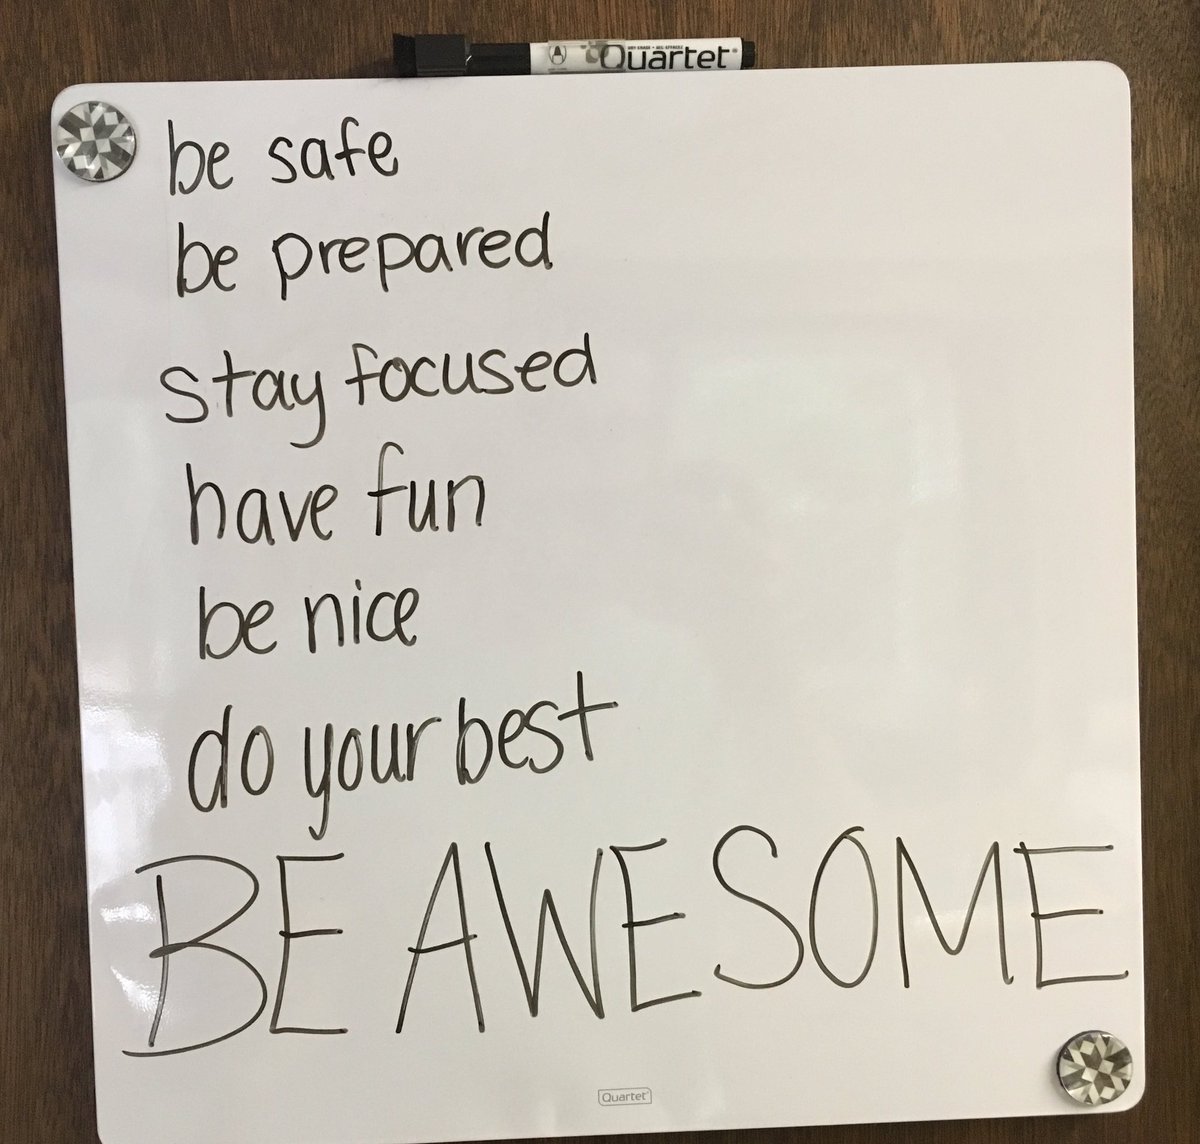 Quartet
be safe
be prepared
stay focused
have fun
be nice
do your best
BE AWESOME
Quartet